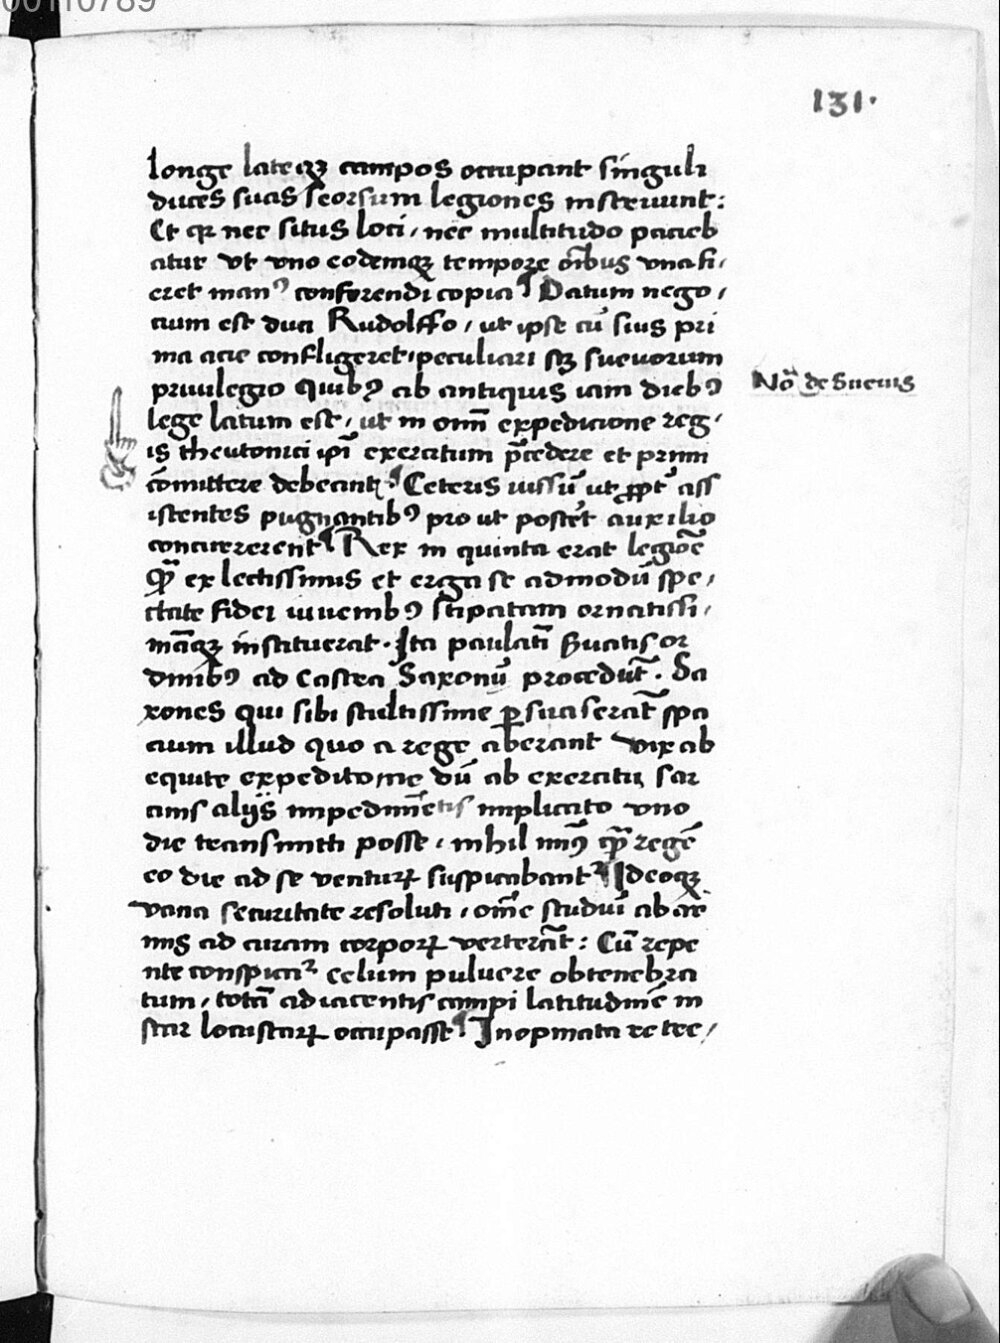 00110789
131.
longe lateqꝫ campos occupant singuli
duces suas seorsum legiones instruunt:
Et qꝛ nec situs loci, nec multitudo pacieb
atur vt vno eodemqꝫ tempore oībus vna fi,
eret manꝰ conserendi copia ¶ Datum nego,
cium est duci Rudolffo, ut ipse cū suis pri
ma acie confligeret, peculiari sꝫ sueuorum
priuilegio Quibꝰ ab antiquis iam diebꝰ
Nō de Sueuis
lege latum est, ut in omni expedicione reg,
is theutonici ip̄i exercitum p̄cedere et primi
cōmittere debeant ¶ Ceteris iussū ut ꝓpt̄ ass
istentes pugnantibꝰ pro ut posc̄et auxilio
concurrerent ¶ Rex in quinta erat legiōe
qm̄ ex lectissimis et erga se admodū spe,
ctate fidei iuuenibꝰ stipatam ornatissi,
māqꝫ instituerat. Ita paulatī ẜuatis or
dinibꝰ ad Castra Saxonū procedūt. Sa
xones qui sibi stultissime ꝑsuaserāt spa
cium illud quo a rege aberant vix ab
equite expedito, ne dū ab exercitu sar
cinis alijs impedimētis implicito vno
die transmitti posse, nihil minꝰ qm̄ regē
eo die ad se venturꝝ suspicabantꝛ ¶ Ideoqꝫ
vana securitate resoluti, om̄e studiū ab ar
mis ad curam corporꝝ verterāt: Cū repe
nte conspiciꝛ celum puluere obtenebra
tum, totā adiacentis campi latitudinē in
star locustarꝝ occupasse ¶ Inopinata re ter,